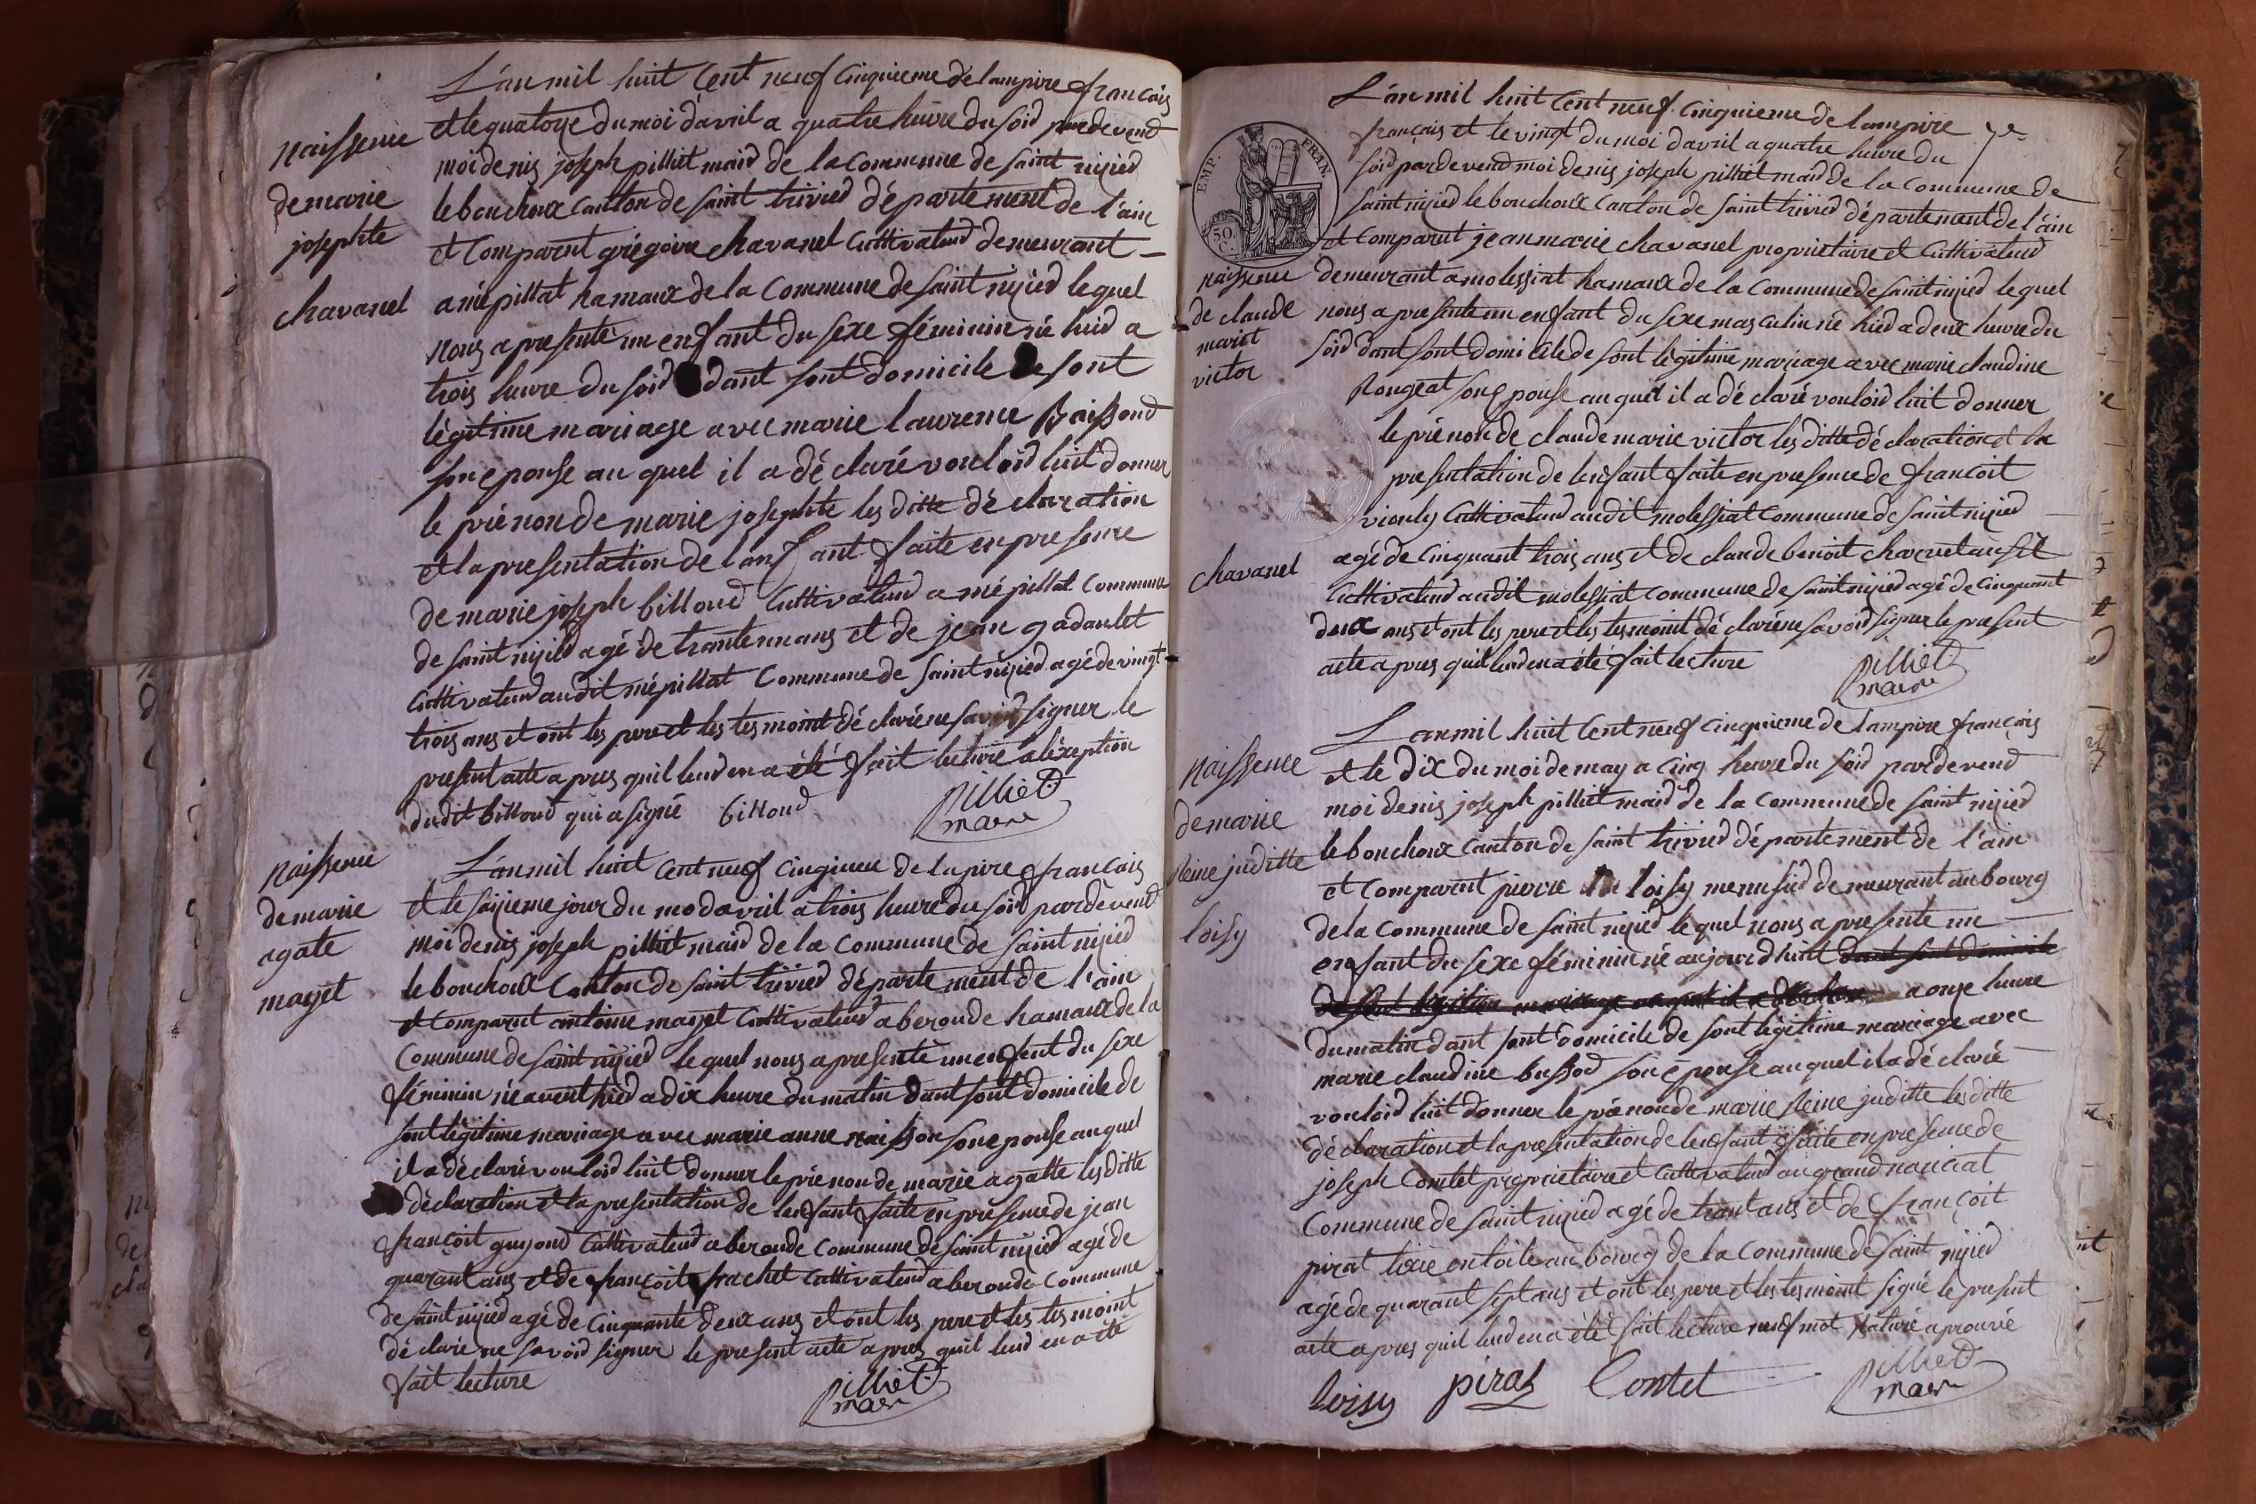 L'an mil huit Cent neuf Cinquieme de lampire francais
naissence
et le quatorze du moi d'avril a quatre heure du soid pardevend
moi denis joseph pilliet maid de la Commune de saint nizied
de marie
le bouchoux Canton de saint trivied département de l'ain
josephte
et Comparut grégoire chavanel Cultivateud demeurant
chavanel
a mépillat hamaux de la Commune de saint nizied le quel
nous a presenté un enfant du sexe féminin né huid a
trois heure du soid dant sont domicile de sont
légitime mariage avec marie laurence
son epouse au quel il a dé claré vouloid luit donner
le prénon de marie josephte les ditte dé claration
et la presentation de lanfant faite en presence
de marie joseph billoud Cultivateud a mépillat Commune
de saint nizied agé de trante un ans et de jean gadaulet
Cultivateud audit mépillat Commune de saint nizied agé de vingt
trois ans et ont les pere et les tesmoint dé claré ne savoid signer le
present acte apres quil leud en a été fait lecture a léxeption
dudit billoud qui a signé billoud pilliet
maire
naissence
L'an mil huit Cent neuf Cinqieme de lapire francais
de marie
et le saizieme jour du mo davril a trois heure du soid pardevent
agate
moi denis joseph pilliet maid de la Commune de saint nizied
mazet
le bouchoux Canton de saint trivied département de l'ain
et Comparut antoine mazet Cultivateud a beronde hamaux de la
Commune de saint nizied le quel nous a presenté un enfent du sexe
féminin né avent hied a dix heure du matin dant sont domicile de
sont légitime mariage avec marie anne son epouse au quel
il a dé claré vouloid luit donner le prénon de marie agatte les ditte
déclaration et la presentation de lenfant faite en presence de jean
françoit guyond Cultivateud a beronde Commune de saint nizied agé de
quarant ans et de françoit frachet Cultivateud a beronde Commune
de saint nizied agé de Cinquante deux ans et ont les pere et les tesmoint
dé claré ne savoid signer le present acte apres quil leud en a été
fait lecture pilliet
maire
L'an mil huit Cent neuf Cinquieme de lampire
français et le vingt du moi d'avril a quatre heure du
soid pardevend moi denis joseph pilliet maid de la Commune de
EMP. FRAN.
50. C.
saint nizied le bouchoux Canton de saint trivied département de l'ain
et Comparut jean marie chavanel proprietaire et Cultivateud
naissence
demeurant a molessiat hamaux de la Commune de saint nizied le quel
de claude
nous a presenté un enfant du sexe masculin né hied a deux heure du
mariet
soid dant sont domicile de sont légitime mariage avec marie claudine
victor
Rongeat son epouse au quel il a dé claré vouloid luit donner
le prénon de claude marie victor les ditte dé claration et la
presentation de lenfant faite en presence de françoit
viouly Cultivateud audit molessiat Commune de saint nizied
chavanel
agé de Cinquant trois ans et de claude benoit
Cultivateud audit molessiat Commune de saint nizied agé de Cinquant
deux ans et ont les pere et les tesmoint dé claré ne savoid signer le present
acte apres quil leud en a été fait lecture pilliet
maire
L'an mil huit Cent neuf Cinquieme de lampire français
naissence
et le dix du moi de may a Cinq heure du soid pardevend
moi denis joseph pilliet maid de la Commune de saint nizied
de marie
le bouchoux Canton de saint trivied département de l'ain
Reine juditte
et Comparut pierre loisy menusied demeurant au bourg
loisy
de la Commune de saint nizied le quel nous a presenté un
enfant du sexe féminin né aujourdhuit dant sont domicile
de sont légitime mariage au quel il a dé claré a onze heure
du matin dant sont domicile de sont légitime mariage avec
marie claudine bussod son épouse au quel il a dé claré
vouloid luit donner le prénon de marie Reine juditte les ditte
déclaration et la presentation de lenfant faite en presence de
joseph Contet proprietaire et Cultivateud au grand nanciat
Commune de saint nizied agé de trant ans et de françoit
pirat tixie en toile au bourg de la Commune de saint nizied
agé de quarant sept ans et ont les pere et les tesmoint signé le present
acte apres quil leud en a été fait lecture neuf mot Raturé aprouvé
loisy pirat Contet pilliet
maire